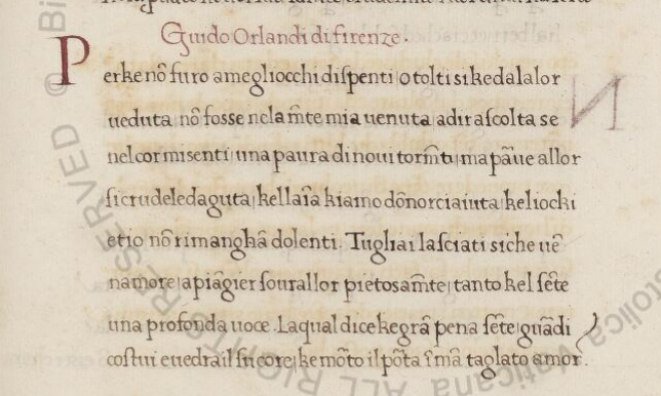 Guido Orlandi di firenze.
Perke nõ furo a megliocchi dispenti o tolti si ke da la lor
ueduta nõ fosse ne la m̃te mia uenuta a dir ascolta se
nel cor mi senti una paura di noui torm̃ti ma pãue allor
si crudel ed aguta ke llaĩa kiamo dõnor ci aiuta ke liocki
et io nõ rimanghã dolenti. Tu gliai lasciati si che uẽ
namore a piãgier soura llor pietosam̃te tanto kel sẽte
una profonda uoce. Laqual dice ke grã pena sẽte guãdi
costui e uedrail su core ke mõto il põta ĩ mã taglato amor.
N
RESERVED © Bi
ALL RIGHTS
stolica Vaticana